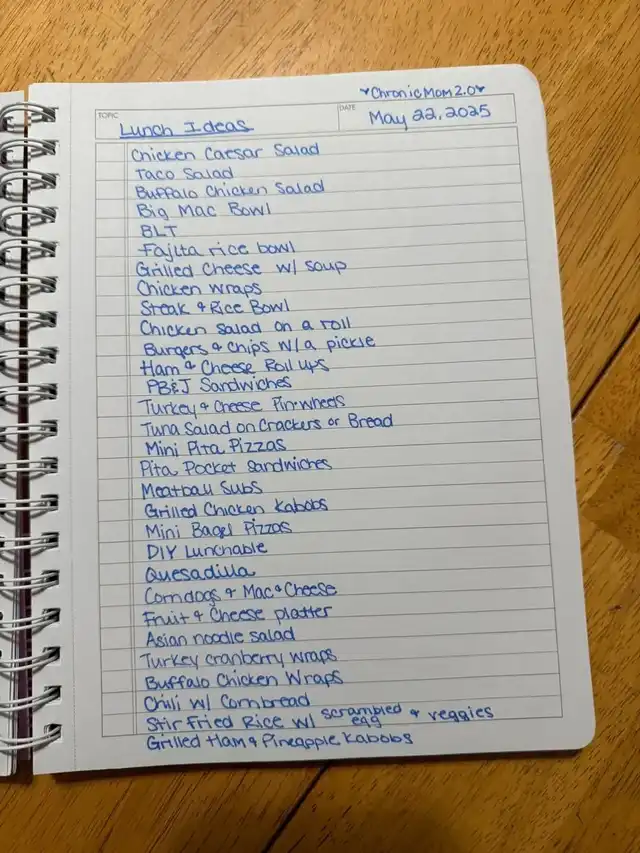 ♥ChronicMom2.0♥
TOPIC
Lunch Ideas
DATE
May 22, 2025
Chicken Caesar Salad
Taco Salad
Buffalo Chicken Salad
Big Mac Bowl
BLT
Fajita rice bowl
Grilled Cheese w/ soup
Chicken wraps
Steak & Rice Bowl
Chicken salad on a roll
Burgers & chips w/a pickle
Ham & Cheese Roll ups
PB&J Sandwiches
Turkey & Cheese Pin-wheels
Tuna Salad on Crackers or Bread
Mini Pita Pizzas
Pita Pocket Sandwiches
Meatball Subs
Grilled Chicken Kabobs
Mini Bagel Pizzas
DIY Lunchable
Quesadilla
Corndogs & Mac & Cheese
Fruit & Cheese platter
Asian noodle salad
Turkey cranberry wraps
Buffalo Chicken Wraps
Chili w/ Cornbread
Stir Fried Rice w/ scrambled egg & veggies
Grilled Ham & Pineapple Kabobs